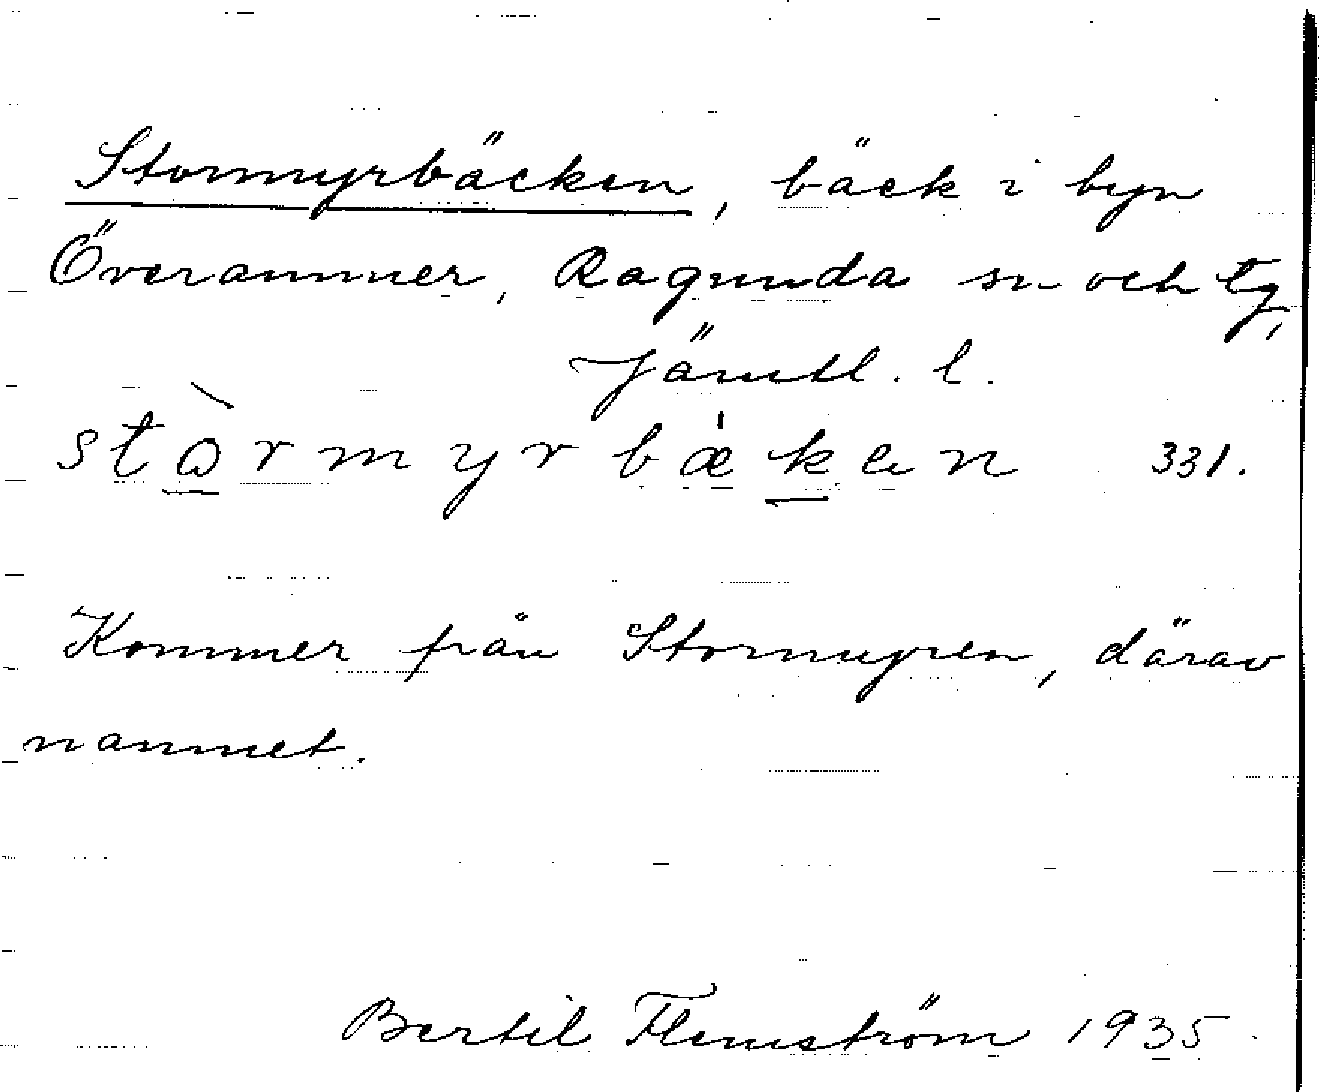 Stormyrbäcken, bäck i byn
Överammer, Ragunda sn och tg,
Jämtl. l.
stɷ̀rmyrbæ̍ken 331.
Kommer från Stormyren, därav
namnet.
Bertil Flemström 1935